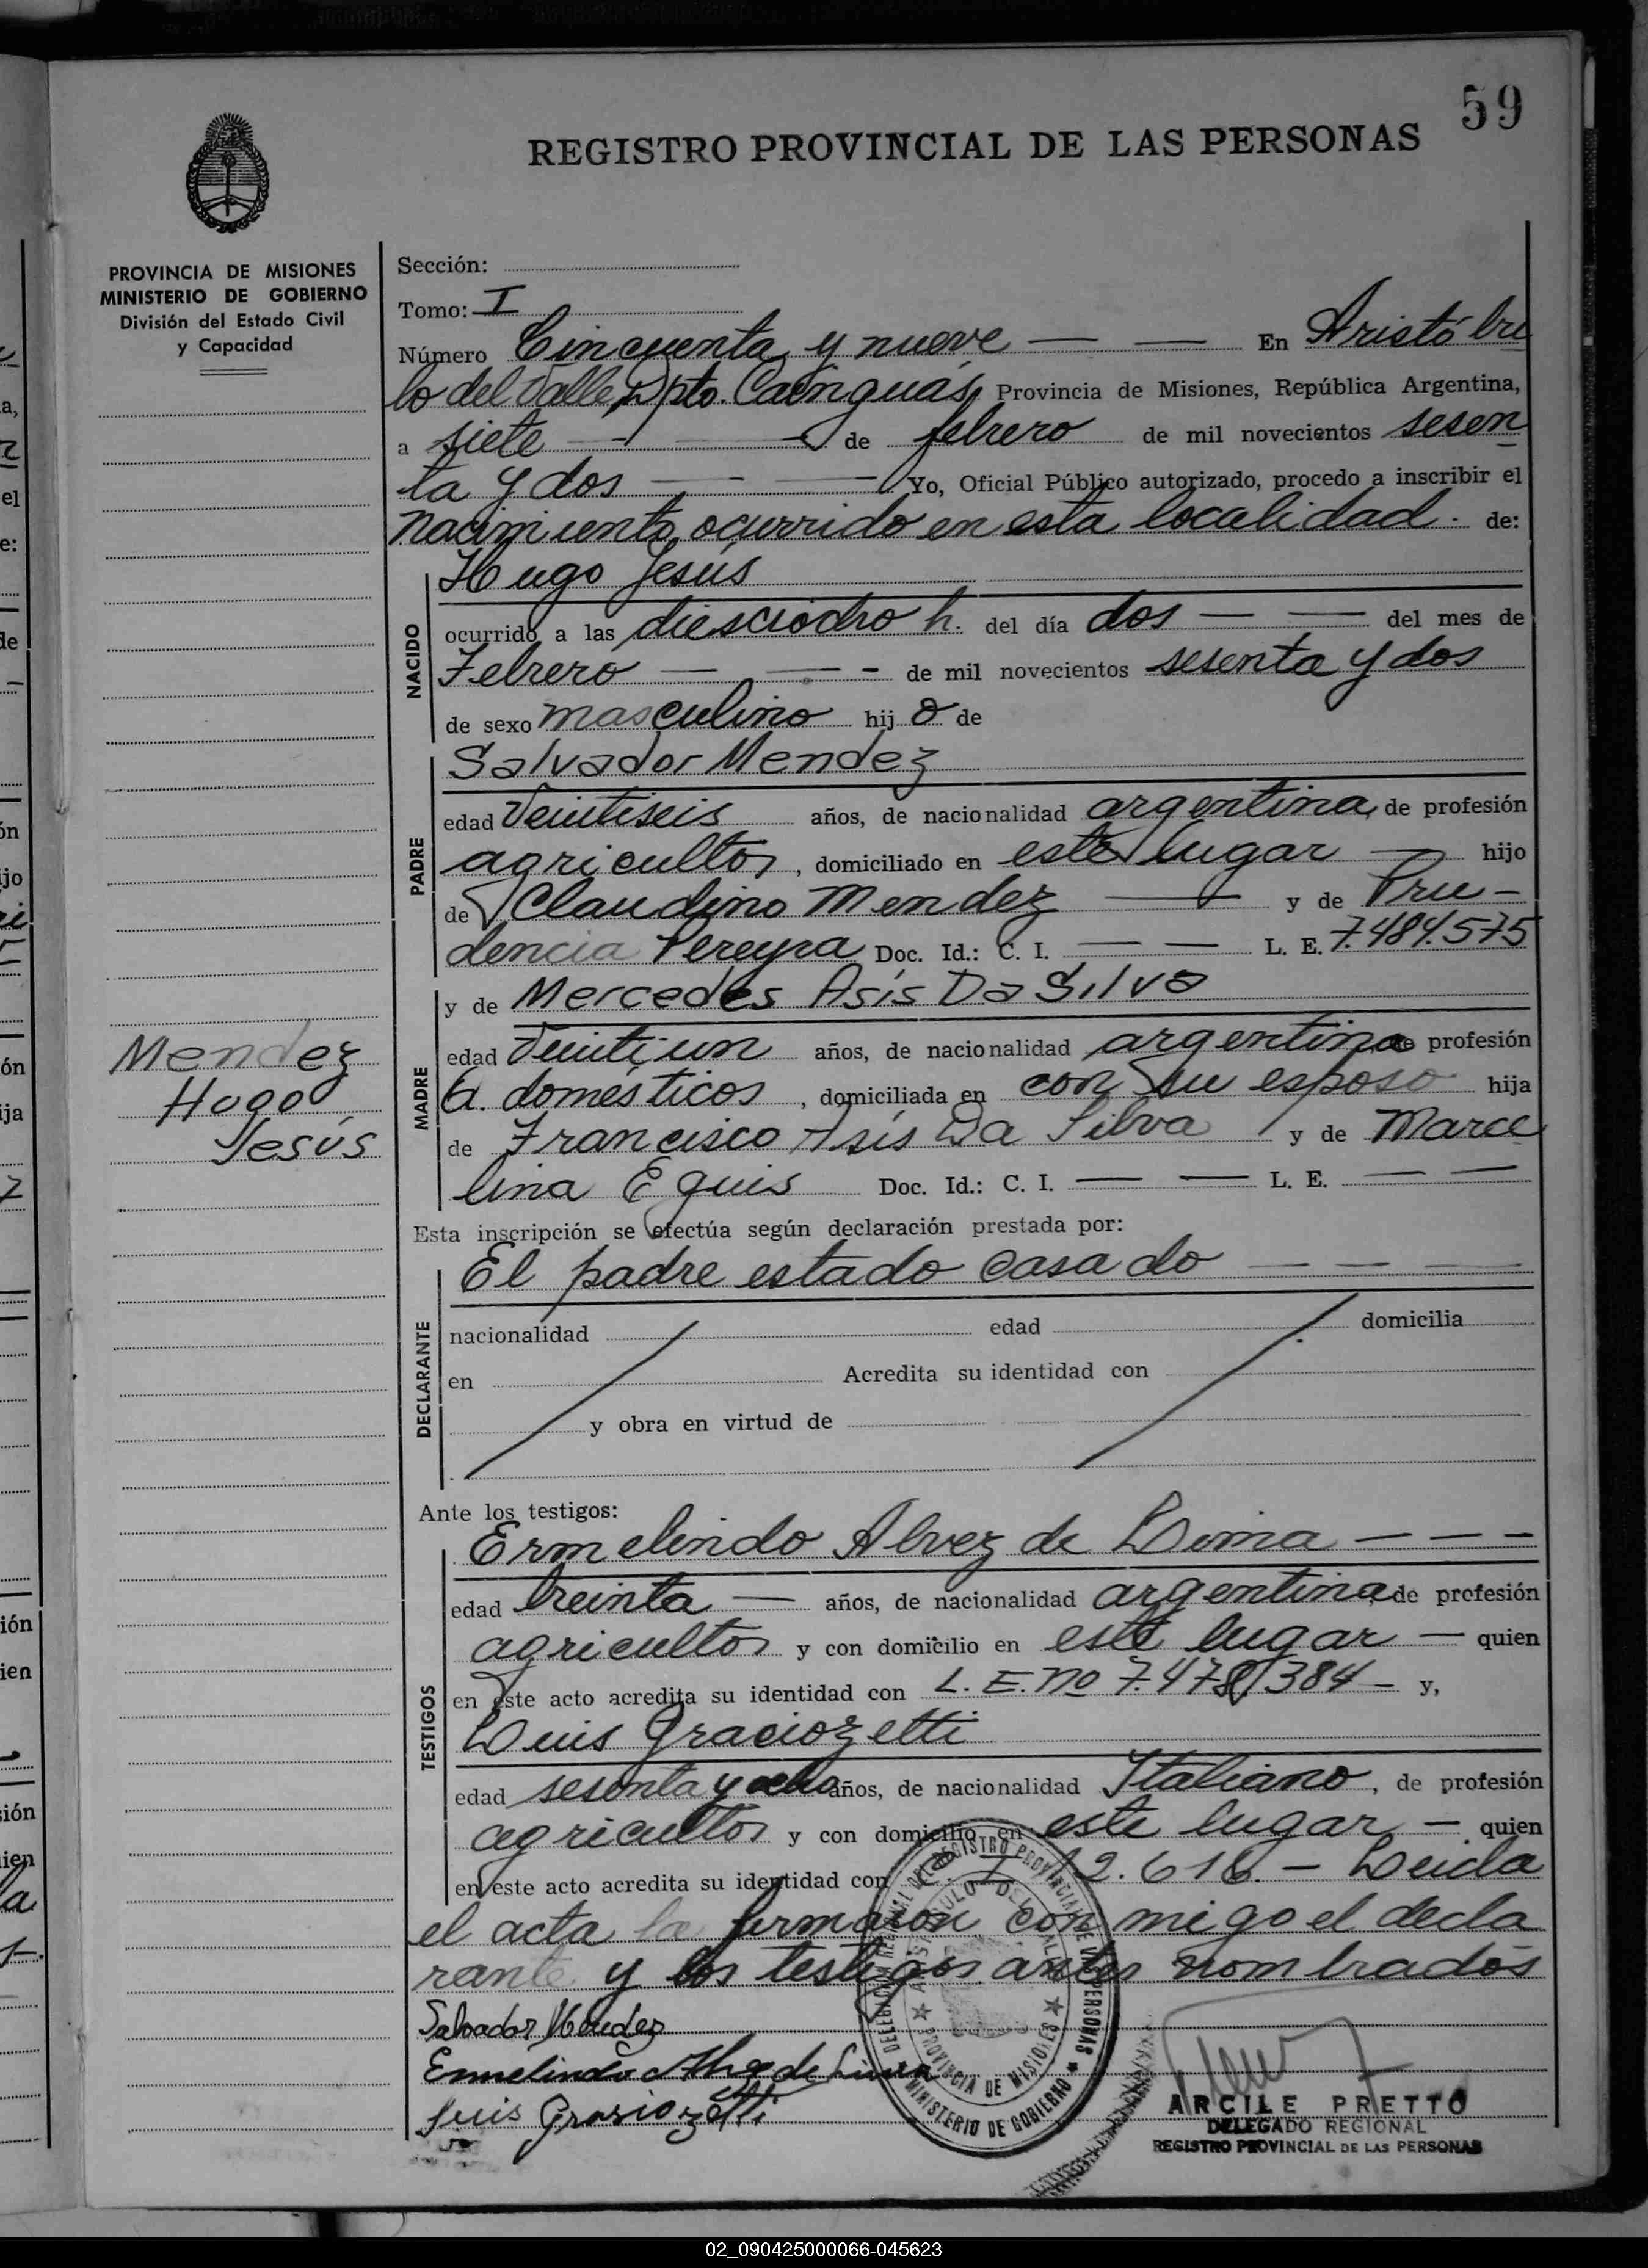 59
REGISTRO PROVINCIAL DE LAS PERSONAS
PROVINCIA DE MISIONES
MINISTERIO DE GOBIERNO
División del Estado Civil
y Capacidad
Mendez
Hugo
Jesús
Sección:
Tomo: I
Número Cincuenta y nueve — — En Aristóbu
lo del Valle, Dpto. Cainguás, Provincia de Misiones, República Argentina,
a siete — — de febrero de mil novecientos sesen
ta y dos — — Yo, Oficial Público autorizado, procedo a inscribir el
nacimiento ocurrido en esta localidad. de:
NACIDO
Hugo Jesús
ocurrido a las diesciocho h. del día dos — — del mes de
Febrero — — - de mil novecientos sesenta y dos
de sexo masculino hij o de
PADRE
Salvador Mendez
edad Veintiseis años, de nacionalidad argentina, de profesión
agricultor, domiciliado en este lugar — hijo
de Claudino Mendez — y de Pru-
dencia Pereyra Doc. Id.: C. I. — — L. E. 7.484.575
MADRE
y de Mercedes Asís Da Silva
edad Veintiun años, de nacionalidad argentina profesión
Q. domésticos, domiciliada en con su esposo hija
de Francisco Asís Da Silva y de Marce
lina Eguis Doc. Id.: C. I. — — L. E. — —
Esta inscripción se efectúa según declaración prestada por:
DECLARANTE
El padre estado casado — — —
nacionalidad edad domicilia
en Acredita su identidad con
y obra en virtud de
Ante los testigos:
TESTIGOS
Ermelindo Alvez de Lima — — —
edad treinta — años, de nacionalidad argentina de profesión
agricultor y con domicilio en este lugar — quien
en este acto acredita su identidad con L. E. nº 7.478.384 - y,
Luis Graciozetti
edad sesenta y ocho años, de nacionalidad Italiano, de profesión
agricultor y con domicilio en este lugar — quien
en este acto acredita su identidad con C. I. 12.616. - Leida
el acta la firmaron con migo el decla
rante y los testigos antes nombrados
Salvador Mendez
Ermelindo Alvez de Lima
Luis Graziozetti
DELEGACION REGIONAL DEL REGISTRO PROVINCIAL DE LAS PERSONAS
ARISTOBULO DEL VALLE
PROVINCIA DE MISIONES
MINISTERIO DE GOBIERNO
ARCILE PRETTO
DELEGADO REGIONAL
REGISTRO PROVINCIAL DE LAS PERSONAS
02_090425000066-045623